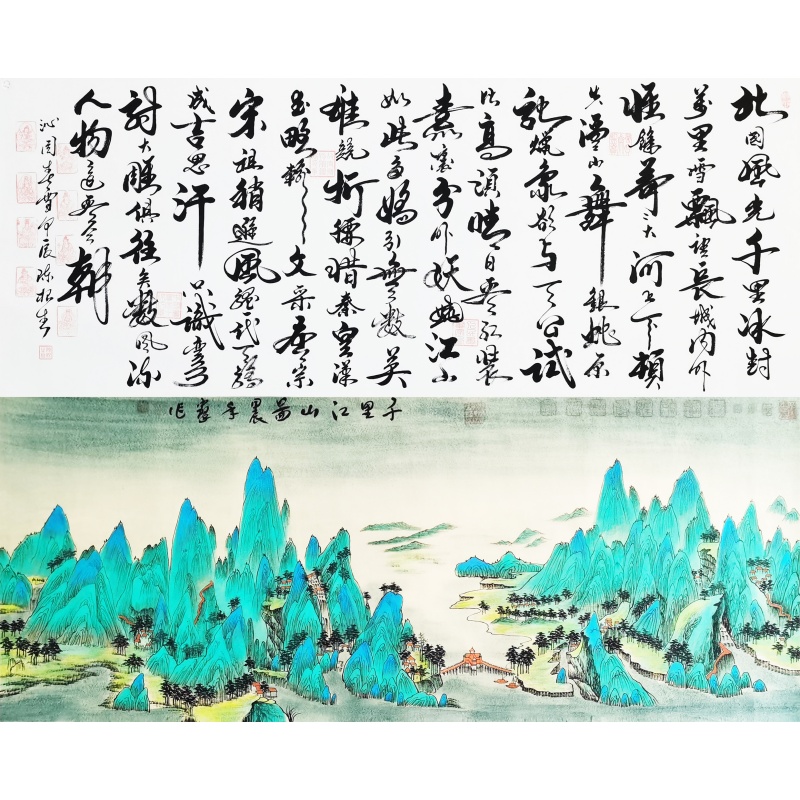 北國風光千里冰封
萬里雪飄望長城內外
惟餘莽莽大河上下頓
失滔滔山舞銀蛇原
馳蠟象欲與天公試
比高須晴日看紅裝
素裹分外妖嬈江山
如此多嬌引無數英
雄競折腰惜秦皇漢
武略輸文采唐宗
宋祖稍遜風騷一代天驕
成吉思汗只識彎弓
射大雕俱往矣數風流
人物還看今朝
沁園春雪甲辰
千里江山圖